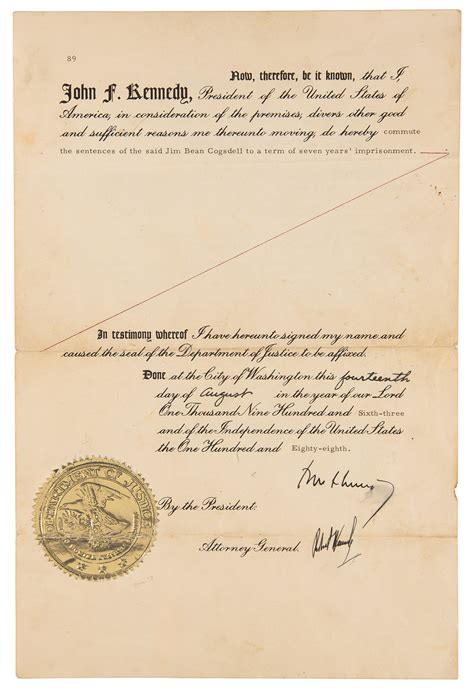 89
Now, therefore, be it known, that I,
John F. Kennedy, President of the United States of
America, in consideration of the premises, divers other good
and sufficient reasons me thereunto moving, do hereby commute
the sentences of the said Jim Bean Cogsdell to a term of seven years' imprisonment.
In testimony whereof I have hereunto signed my name and
caused the seal of the Department of Justice to be affixed.
Done at the City of Washington this fourteenth
day of August in the year of our Lord
One Thousand Nine Hundred and Sixty-three
and of the Independence of the United States
the One Hundred and Eighty-eighth.
By the President:
Robert Kennedy
Attorney General.
DEPARTMENT OF JUSTICE